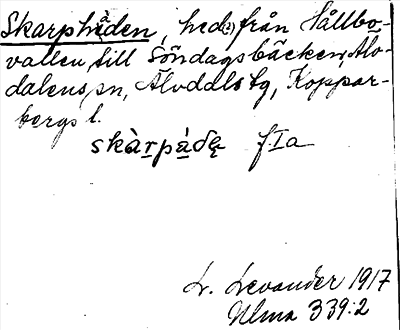 Skarphèden, hed(?) från Hållbo-
vallen till Söndagsbäcken, Älv-
dalens sn, Älvdals tg, Koppar-
bergs l.
skàrpádę f.Ia
L. Levander 1917
Ulma 339:2